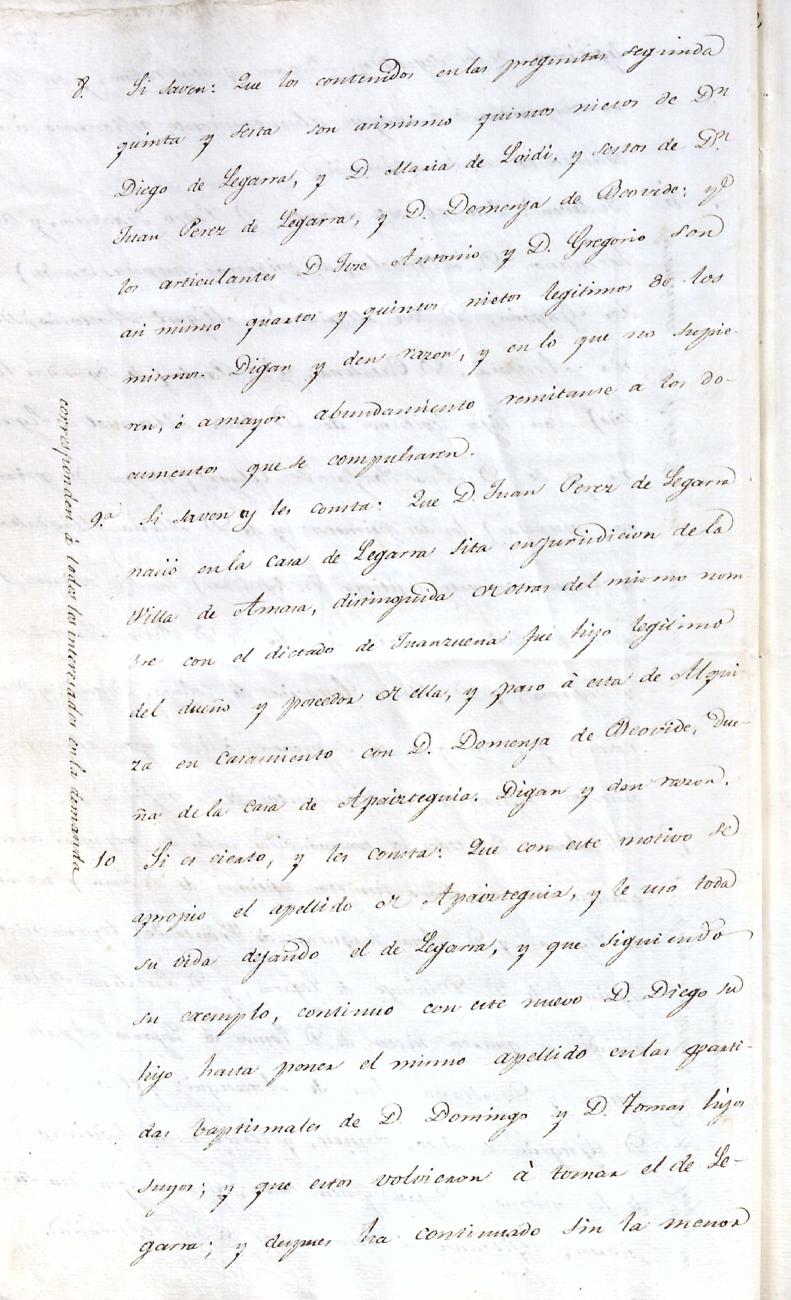 8. Si saven: Que los contenidos en las preguntas segunda
quinta y sesta son asimismo quintos nietos de Dn
Diego de Legarra, y D. Maria de Loidi, y sestos de Dn
Juan Perez de Legarra, y D. Domenja de Beovide; y
los articulantes D Jose Antonio y D. Gregorio son
asi mismo quartos y quintos nietos legitimos de los
mismos. Digan y den razon, y en lo que no supie-
ren, ó a mayor abundamiento remitanse á los do-
cumentos que se compulsaren.
9.a Si saven y les consta: Que D. Juan Perez de Legarra
nació en la casa de Legarra sita en jurisdicion de la
Villa de Amasa, distinguida de otras del mismo nom
bre con el dictado de Juanzuena fue hijo legitimo
del dueño y poseedor de ella, y paso à esta de Alqui
za en casamiento con D. Domenja de Beovide, due-
ña de la casa de Apaizteguia. Digan y den razon.
10 Si es cierto, y les consta: Que con este motivo se
apropio el apellido de Apaizteguia, y le uso toda
su vida dejando el de Legarra, y que siguiendo
su exemplo, continuo con este nuevo D. Diego su
hijo hasta poner el mismo apellido en las parti-
das baptismales de D. Domingo y D. Tomas hijos
suyos; y que estos volvieron à tomar el de Le-
garra; y despues ha continuado sin la menor
corresponden á todos los interesados en la demanda